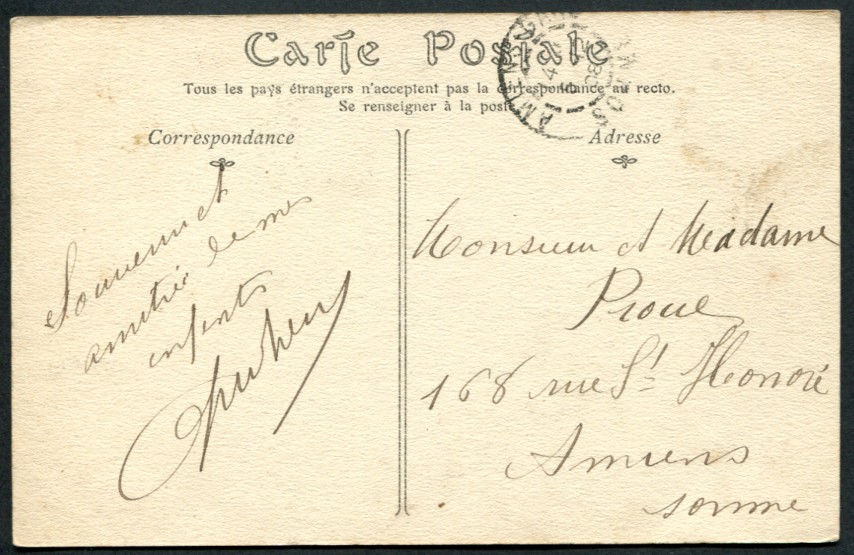 Carte Postale
Tous les pays étrangers n'acceptent pas la correspondance au recto.
Se renseigner à la poste.
Correspondance
Adresse
Souvenir et
amitiés de mes
enfants
Monsieur et Madame
Proue
168 rue St Honoré
Amiens
Somme